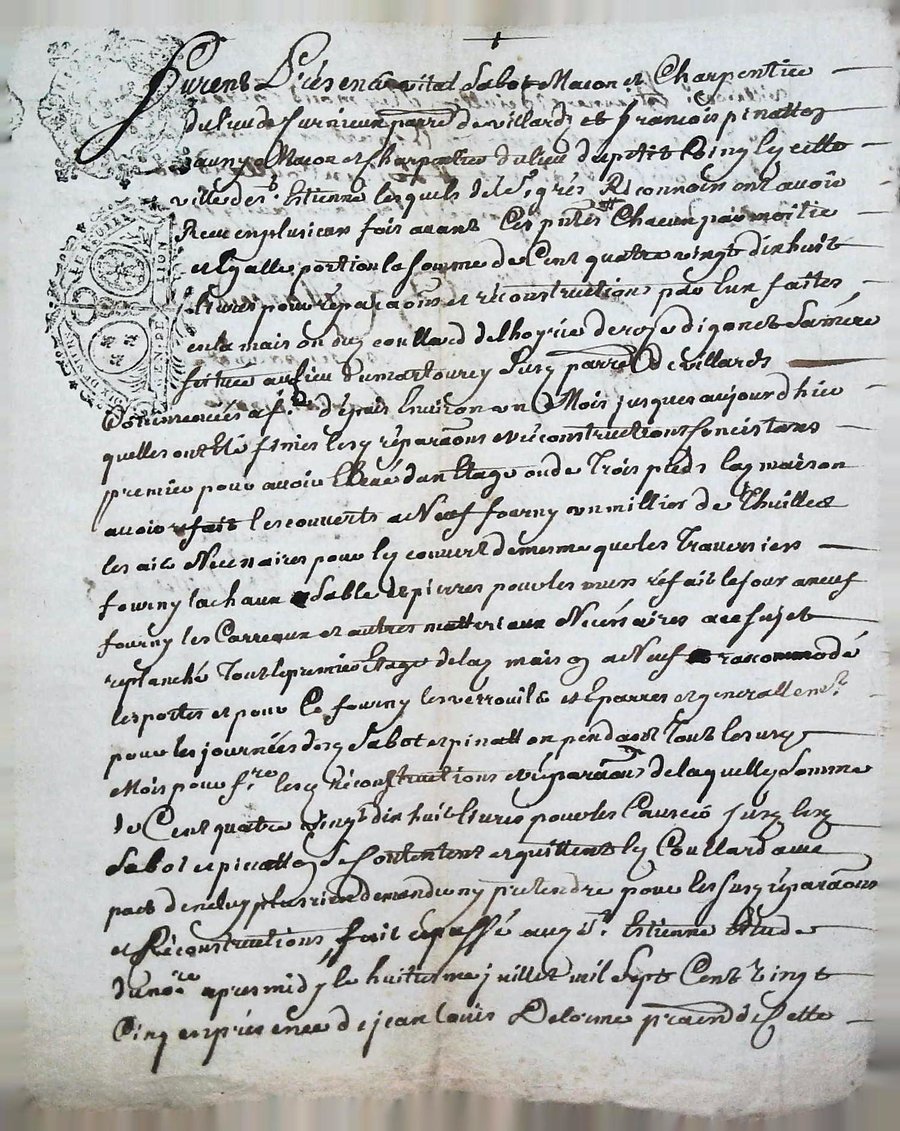 Furent Présens vital Sabot Masson et Charpentier
du lieu de furnieux parre de villards et françois pinatton
aussy Masson et Charpentier du lieu du petit Coing les cette
ville de St Etienne lesquels de le grés Reconnoissent avoir
Receu en plusieurs fois avant Ces pntes Chacun par moitie
et Egalle portion la somme de Cent quatre vingt dix huit
Livres pour réparaons et réconstructions par Eux faites
en la maison du Coullard de
scituee au lieu du martourey susd parre de villards
Commencées a fre dépuis Environ un Mois jusques aujourdhier
quelles ont Eté finies lesd réparaons et réconstructions concistans
premier pour avoir Elevé d'un Etage ou de Trois pieds lad maison
avoir refait les couverts a Neuf fourny un millier de Thuilles
les ais Nécessaires pour led couvert de mesme que les Traversiers
fourny la chaux Sable et pierres pour les murs réfait le four a neuf
fourny les Carreaux et autres matteriaux Nécessaires a ce sujet
replanché Tout le premier Etage de lad maison a Neuf racommodé
les portes et pour Ce fourny les verrouils et Eparres et generallemt
pour les journées desd Sabot et pinatton pendant Tout le susd
Mois pour fre lesd réconstructions et réparaons de laquelle Somme
de Cent quatre Vingt dix huit Livres pour les Causes susd lesd
Sabot et pinatton se Contentent et quittent led Coullard avec
pact de ne luy plus rien demander ny prétendre pour les susd réparaons
et Réconstructions, fait et passé aud St Etienne Etude
du nore apres midy le huitieme juillet mil Sept Cent Vingt
Cinq en présence de jean Louis Delorme praen de Cette